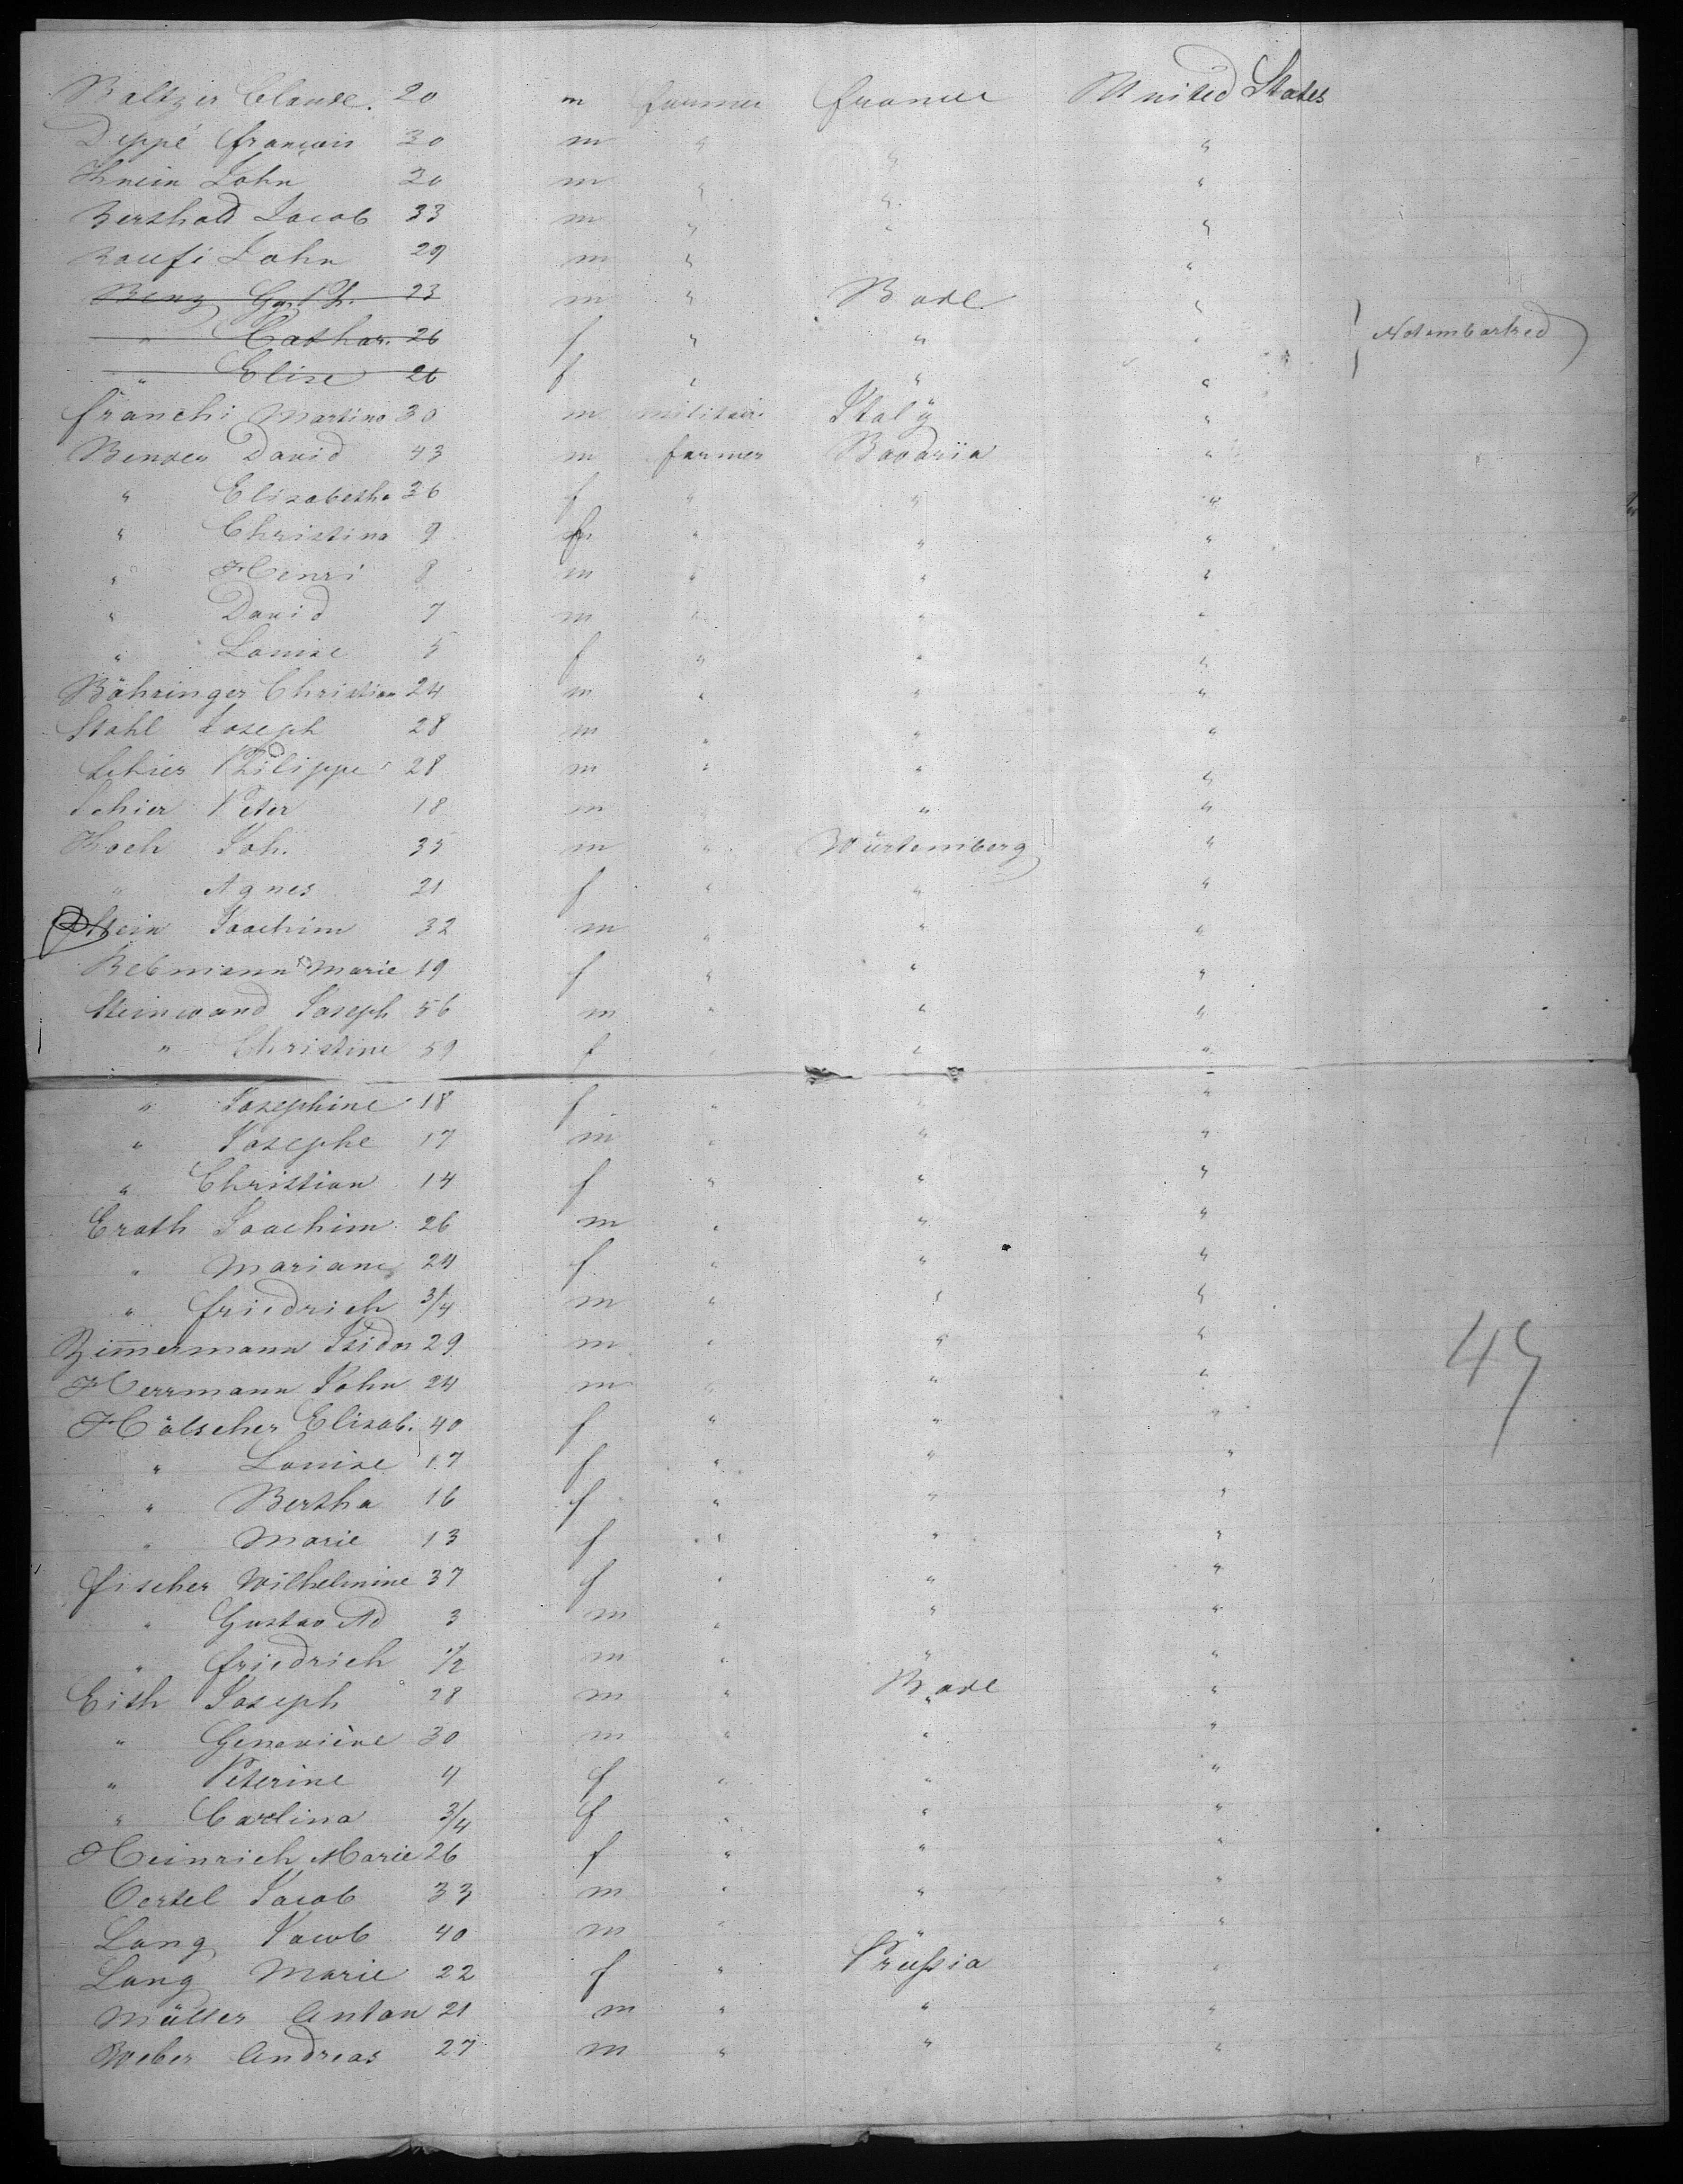 Baltzer Claude. 20 m farmer france United States
Deppé françois 30 m " " "
Knein John 20 m " " "
Berthold Jacob 33 m " " "
Raufi John 29 m " "
Benz 23 m " Bade "
" Cathar. 26 f " " " Not embarked
" Elise 26 f " " "
franchi Martino 30 m militair Italÿ "
Bender David 43 m farmer Bavaria "
" Elisabetha 36 f " " "
" Christina 9 f " " "
" Henri 8 m " " "
" David 7 m " " "
" Louise 5 f " " "
Böhringer Christian 24 m " " "
Stahl Joseph 28 m " " "
Schier Philippe 28 m " " "
Schier Peter 18 m " " "
Koch Joh. 35 m " Würtemberg "
" Agnes 21 f " " "
Stein Joachim 32 m " " "
Rebmann Marie 19 f " " "
Steinwand Joseph 56 m " " "
" Christine 59 f " " "
" Josephine 18 f " " "
" Josephe 17 m " " "
" Christian 14 f " " "
Erath Joachim 26 m " " "
" Mariane 24 f " " "
" friedrich 3/4 m " " "
Zim̅ermann Isidor 29 m " " "
Herrmann John 24 m " " " 45
Hölscher Elisab. 40 f " " "
" Louise 17 f " " "
" Bertha 16 f " " "
" Marie 13 f " " "
fischer Wilhelmine 37 f " " "
" Gustav Ad 3 m " " "
" friedrich 1/2 m " " "
Eith Joseph 28 m " Bade "
" Geneviève 30 m " " "
" Peterine 4 f " " "
" Carlina 3/4 f " " "
Heinrich Marie 26 f " " "
Oertel Jacob 33 m " " "
Lang Jacob 40 m " " "
Lang Marie 22 f " Prussia "
Müller Anton 21 m " " "
Weber Andreas 27 m " " "